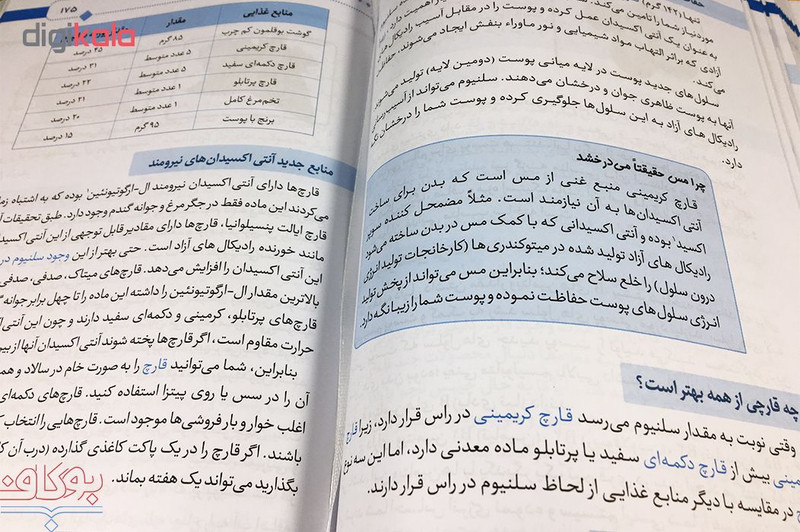 تنها (۱۴۲ گرم)
مورد نیاز شما را تامین می‌کند.
به عنوان یک آنتی اکسیدان عمل کرده و پوست را در مقابل آسیب رادیکال‌های
آزادی که بر اثر التهاب مواد شیمیایی و نور ماوراء بنفش ایجاد می‌شوند،
می‌کند.
سلول های جدید پوست در لایه میانی پوست (دومین لایه) تولید می‌شوند
آنها به پوست ظاهری جوان و درخشان می‌دهند. سلنیوم می‌تواند از آسیب
رادیکال های آزاد به این سلول‌ها جلوگیری کرده و پوست شما را درخشان
دارد.
چرا مس حقیقتاً می‌درخشد
قارچ کریمینی منبع غنی از مس است که بدن برای ساخت
آنتی اکسیدان‌ها به آن نیازمند است. مثلاً مضمحل کننده سوپر
اکسید بوده و آنتی اکسیدانی که با کمک مس در بدن ساخته می‌شود
رادیکال های آزاد تولید شده در میتوکندری‌ها (کارخانجات تولید انرژی
درون سلول) را خلع سلاح می‌کند؛ بنابراین مس می‌تواند از پخش تولید
انرژی سلول های پوست حفاظت نموده و پوست شما را زیبا نگه دارد.
چه قارچی از همه بهتر است؟
وقتی نوبت به مقدار سلنیوم می‌رسد قارچ کریمینی در راس قرار دارد، زیرا قارچ
بیش از قارچ دکمه‌ای سفید یا پرتابلو ماده معدنی دارد، اما این سه نوع
در مقایسه با دیگر منابع غذایی از لحاظ سلنیوم در راس قرار دارند.
۱۷۵
منابع غذایی مقدار
گوشت بوقلمون کم چرب ۸۵ گرم
قارچ کریمینی ۵ عدد متوسط ۲۵ درصد
قارچ دکمه‌ای سفید ۵ عدد متوسط ۳۱ درصد
قارچ پرتابلو ۱ عدد متوسط ۲۲ درصد
تخم‌مرغ کامل ۱ عدد متوسط ۲۱ درصد
برنج با پوست ۹۵ گرم ۲۰ درصد
۱۵ درصد
منابع جدید آنتی اکسیدان‌های نیرومند
قارچ‌ها دارای آنتی اکسیدان نیرومند ال-ارگوتیونئین بوده که به اشتباه
می‌کردند این ماده فقط در جگر مرغ و جوانه گندم وجود دارد. طبق تحقیقات
قارچ ایالت پنسیلوانیا، قارچ‌ها دارای مقادیر قابل توجهی از این آنتی
مانند خورنده رادیکال های آزاد است. حتی بهتر از این وجود سلنیوم در
این آنتی اکسیدان را افزایش می‌دهد. قارچ‌های میتاک، صدفی،
بالاترین مقدار ال-ارگوتیونئین را داشته این ماده را تا چهل برابر جوانه
قارچ‌های پرتابلو، کرمینی و دکمه‌ای سفید دارند و چون این
حرارت مقاوم است، اگر قارچ‌ها پخته شوند آنتی اکسیدان آنها از
بنابراین، شما می‌توانید قارچ را به صورت خام در سالاد و
آن را در سس یا روی پیتزا استفاده کنید. قارچ‌های دکمه‌ای
اغلب خوار و بار فروشی‌ها موجود است. قارچ‌هایی را انتخاب
باشند. اگر قارچ را در یک پاکت کاغذی گذارده (درب آن
بگذارید می‌تواند یک هفته بماند.
digikala
بوکاوند